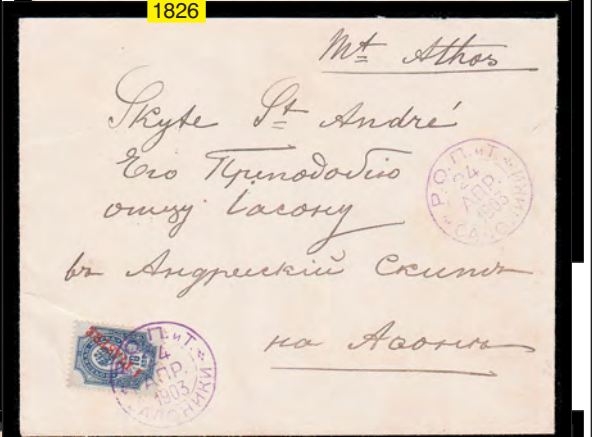 1826
Mt Athos
Skyte St André
Его Преподобію
отцу Іасону
въ Андреевскій Скитъ
на Аѳонъ
Р.О.П. и Т.
4
АПР.
1903
САЛОНИКИ
Р.О.П. и Т.
4
АПР.
1903
САЛОНИКИ
10